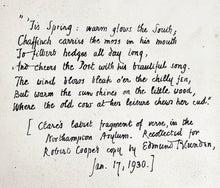 "'Tis Spring: warm glows the South,
Chaffinch carries the moss in his mouth
To filbert hedges all day long,
And cheers the Poet with his beautiful song.
The wind blows bleak o'er the chilly fen,
But warm the sun shines on the little wood,
Where the old cow at her leisure chews her cud."
[Clare's latest fragment of verse, in the
Northampton Asylum. Recollected for
Robert Cooper copy by Edmund Blunden,
Jan. 17, 1930.]